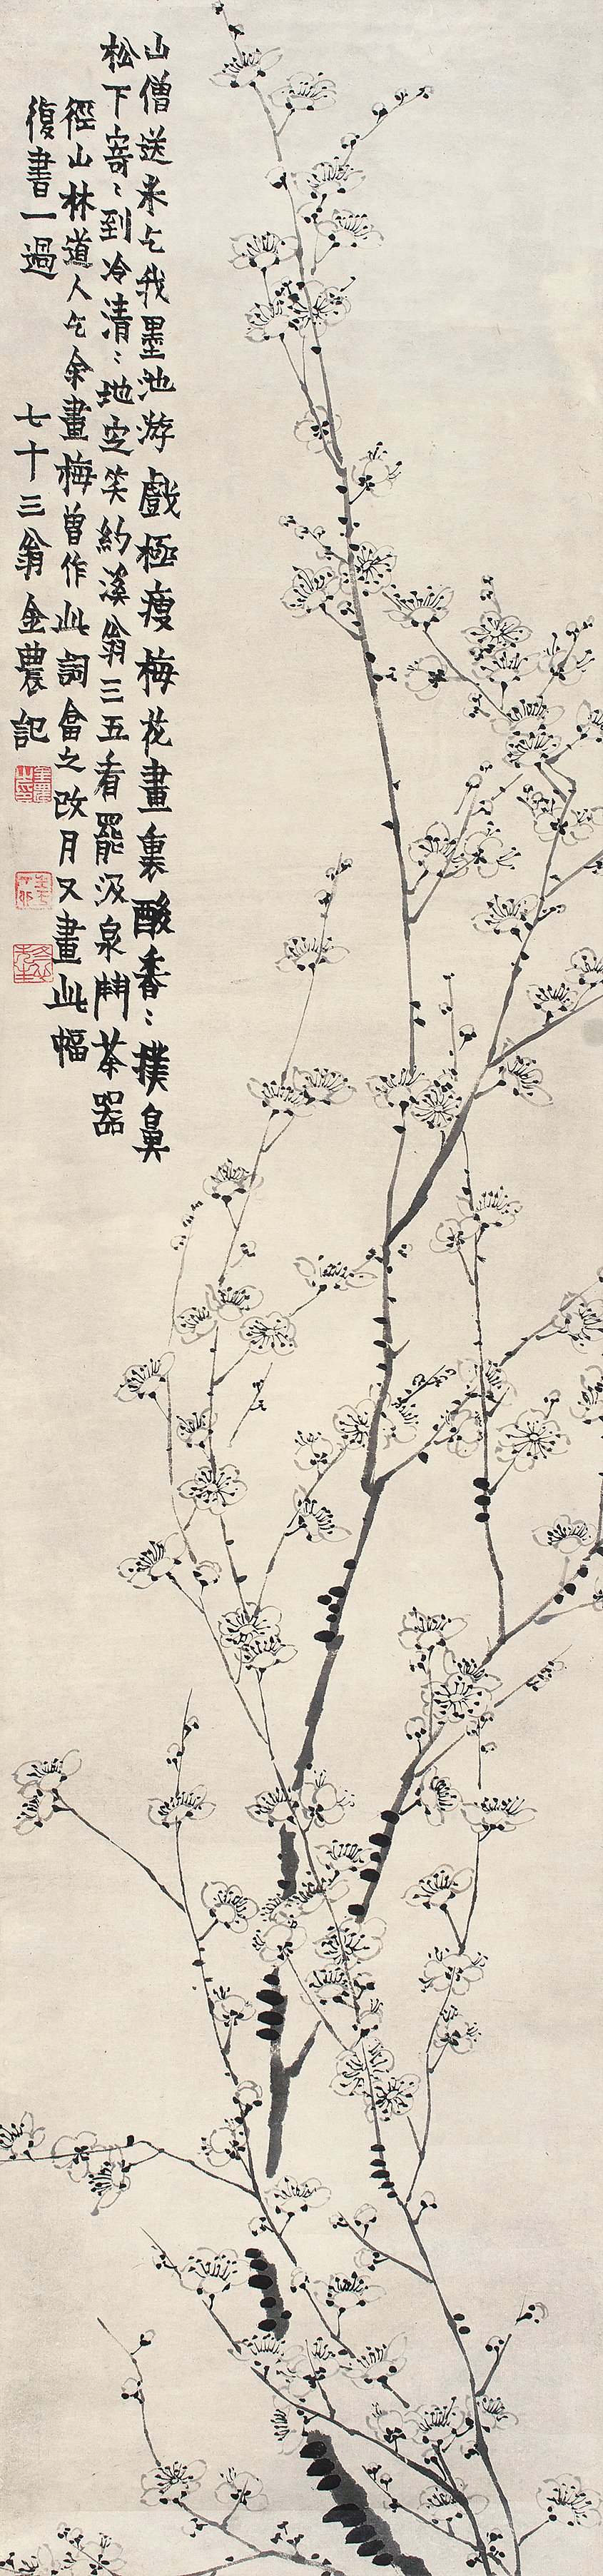 山僧送米乞我墨池游戲極瘦梅花畫裏酸香〻撲鼻
松下寄〻到冷清〻地定笑約溪翁三五看罷汲泉鬥茶器
徑山林道人乞余畫梅曾作此詞畣之改月又畫此幅
復書一過　七十三翁金農記